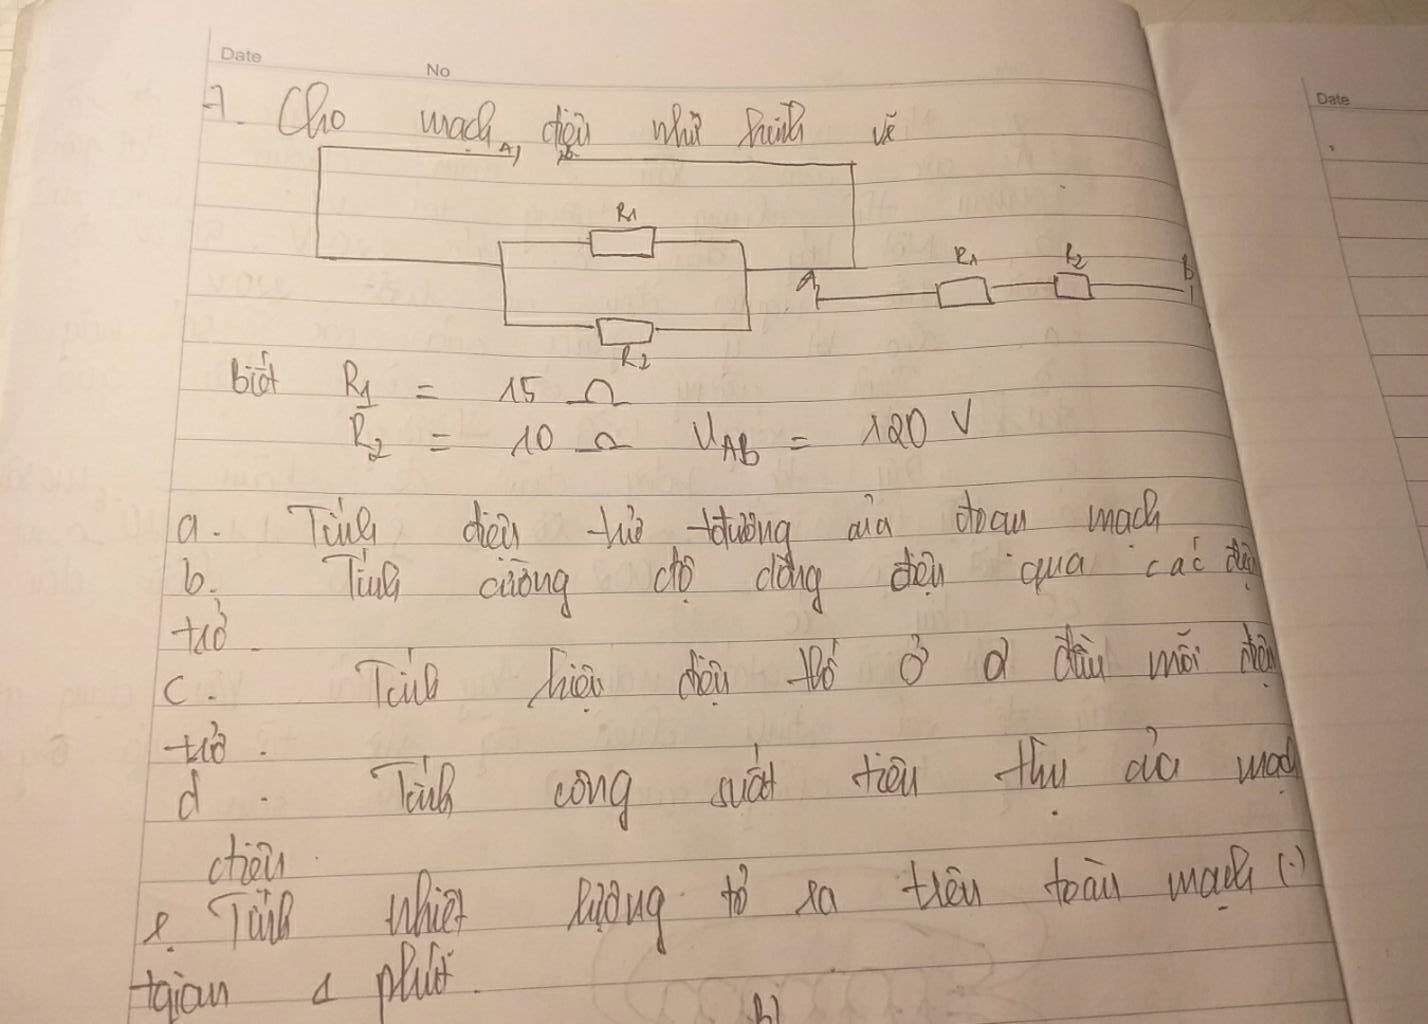 Date
No
Date
7. Cho mạch điện như hình vẽ
A B
R1
R1 R2
A B
R2
biết R1 = 15 Ω
R2 = 10 Ω UAB = 120 V
a. Tính điện trở tđương của đoạn mạch
b. Tính cường độ dòng điện qua các điện
trở.
c. Tính hiệu điện thế ở 2 đầu mỗi điện
trở.
d. Tính công suất tiêu thụ của mạch
điện.
e. Tính nhiệt lượng tỏ ra trên toàn mạch (.)
tgian 1 phút.
b)